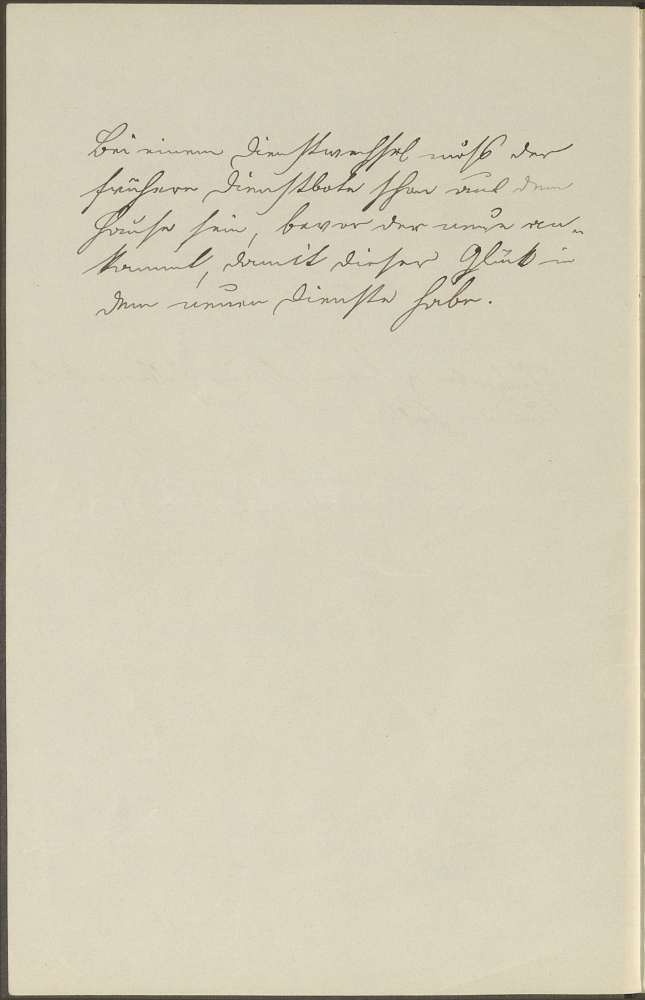 Bei einem Dienstwechsel muß der
frühere Dienstbote schon aus dem
Hause sein, bevor der neue an-
kommt, damit dieser Glück in
dem neuen Dienste habe.